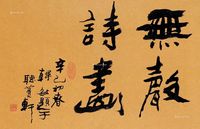 無聲
詩畫
辛巳初春
韓敏題于
聽蕢軒